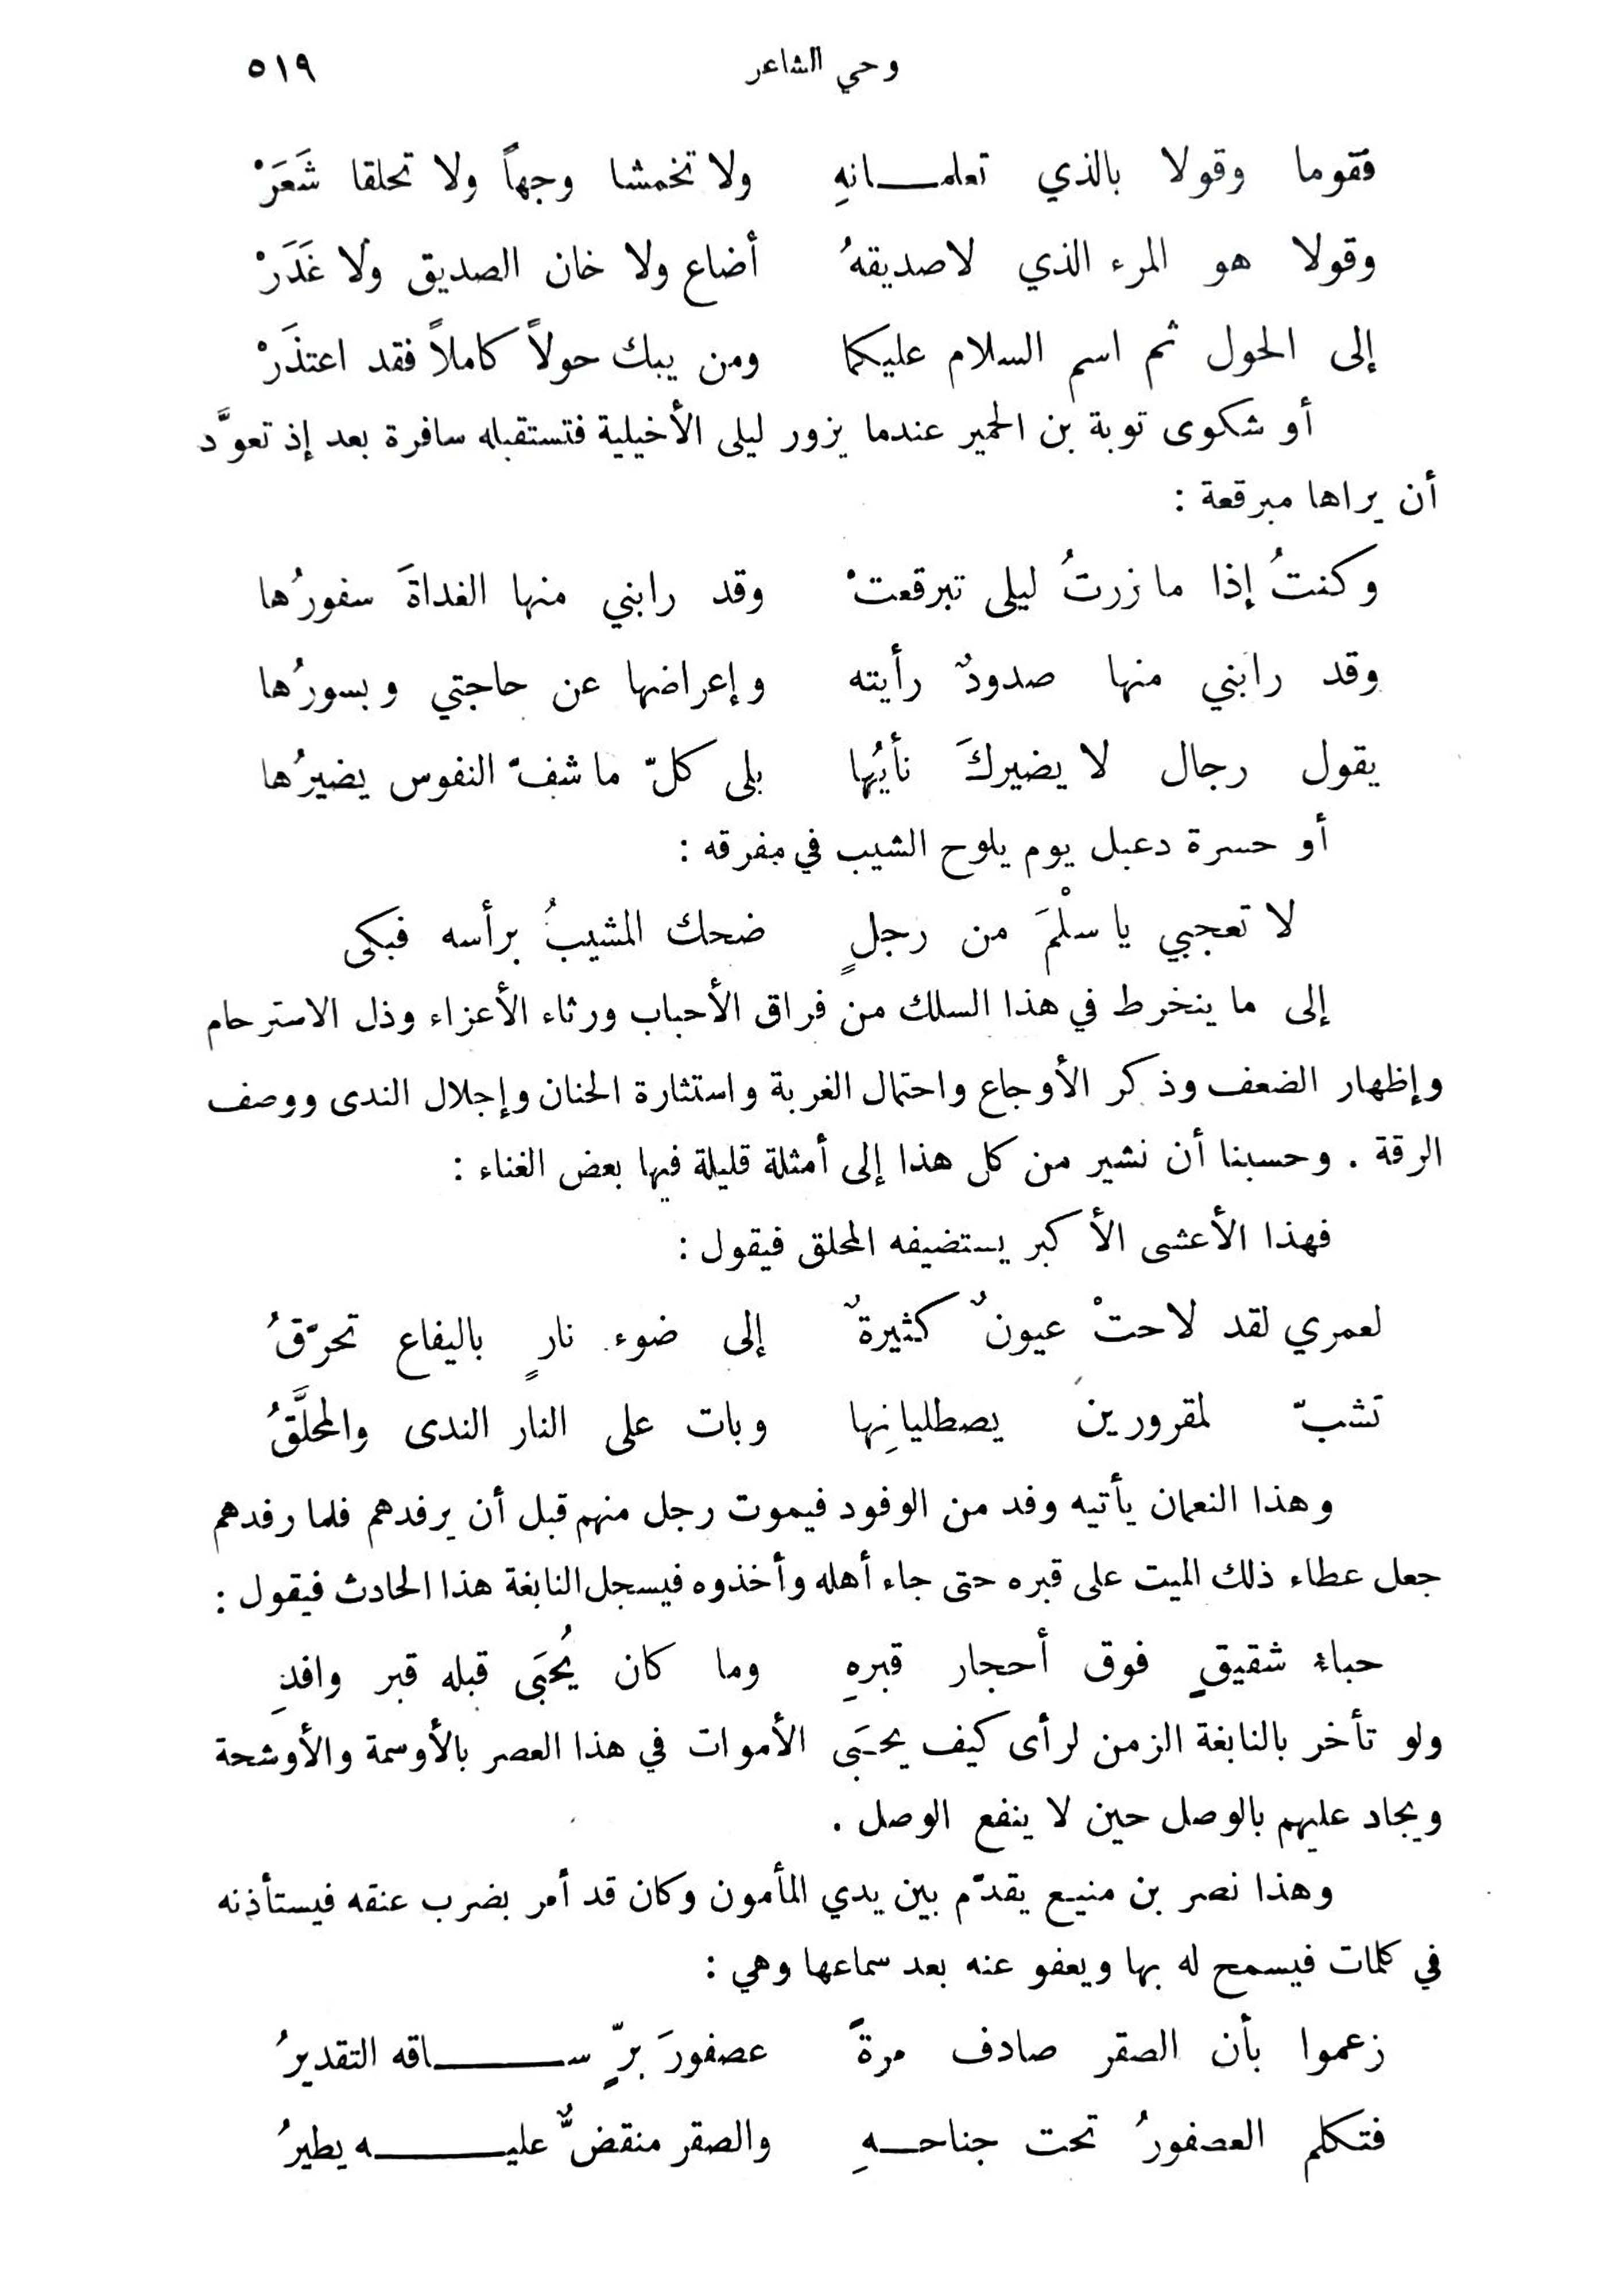 وحي الشاعر ٥١٩
فقوما وقولا بالذي تعلمـــانهِ ولا تخمشا وجهاً ولا تحلقا شَعَرْ
وقولا هو المرء الذي لا صديقهُ أضاع ولا خان الصديق ولا غَدَرْ
إلى الحول ثم اسم السلام عليكما ومن يبك حولاً كاملاً فقد اعتذَرْ
أو شكوى توبة بن الحمير عندما يزور ليلى الأخيلية فتستقبله سافرة بعد إذ تعوَّد
أن يراها مبرقعة :
وكنتُ إذا ما زرتُ ليلى تبرقعتْ وقد رابني منها الغداةَ سفورُها
وقد رابني منها صدودٌ رأيته وإعراضها عن حاجتي وبسورُها
يقول رجال لا يضيركَ نأيُها بلى كلّ ما شفّ النفوس يضيرُها
أو حسرة دعبل يوم يلوح الشيب في مفرقه :
لا تعجبي يا سلْمَ من رجلٍ ضحك المشيبُ برأسه فبكى
إلى ما ينخرط في هذا السلك من فراق الأحباب ورثاء الأعزاء وذل الاسترحام
وإظهار الضعف وذكر الأوجاع واحتمال الغربة واستثارة الحنان وإجلال الندى ووصف
الرقة . وحسبنا أن نشير من كل هذا إلى أمثلة قليلة فيها بعض الغناء :
فهذا الأعشى الأكبر يستضيفه المحلق فيقول :
لعمري لقد لاحتْ عيونٌ كثيرةٌ إلى ضوء نارٍ باليفاع تحرّقُ
تشبّ لمقرورينَ يصطليانِها وبات على النار الندى والمحلَّقُ
وهذا النعمان يأتيه وفد من الوفود فيموت رجل منهم قبل أن يرفدهم فلما رفدهم
جعل عطاء ذلك الميت على قبره حتى جاء أهله وأخذوه فيسجل النابغة هذا الحادث فيقول :
حباءُ شقيقٍ فوق أحجار قبرهِ وما كان يُحبَى قبله قبر وافدِ
ولو تأخر بالنابغة الزمن لرأى كيف يحبَى الأموات في هذا العصر بالأوسمة والأوشحة
ويجاد عليهم بالوصل حين لا ينفع الوصل .
وهذا نصر بن منيع يقدّم بين يدي المأمون وكان قد أمر بضرب عنقه فيستأذنه
في كلمات فيسمح له بها ويعفو عنه بعد سماعها وهي :
زعموا بأن الصقر صادف مرةً عصفورَ برٍّ ســـــاقه التقديرُ
فتكلم العصفورُ تحت جناحـهِ والصقر منقضٌّ عليـــــه يطيرُ